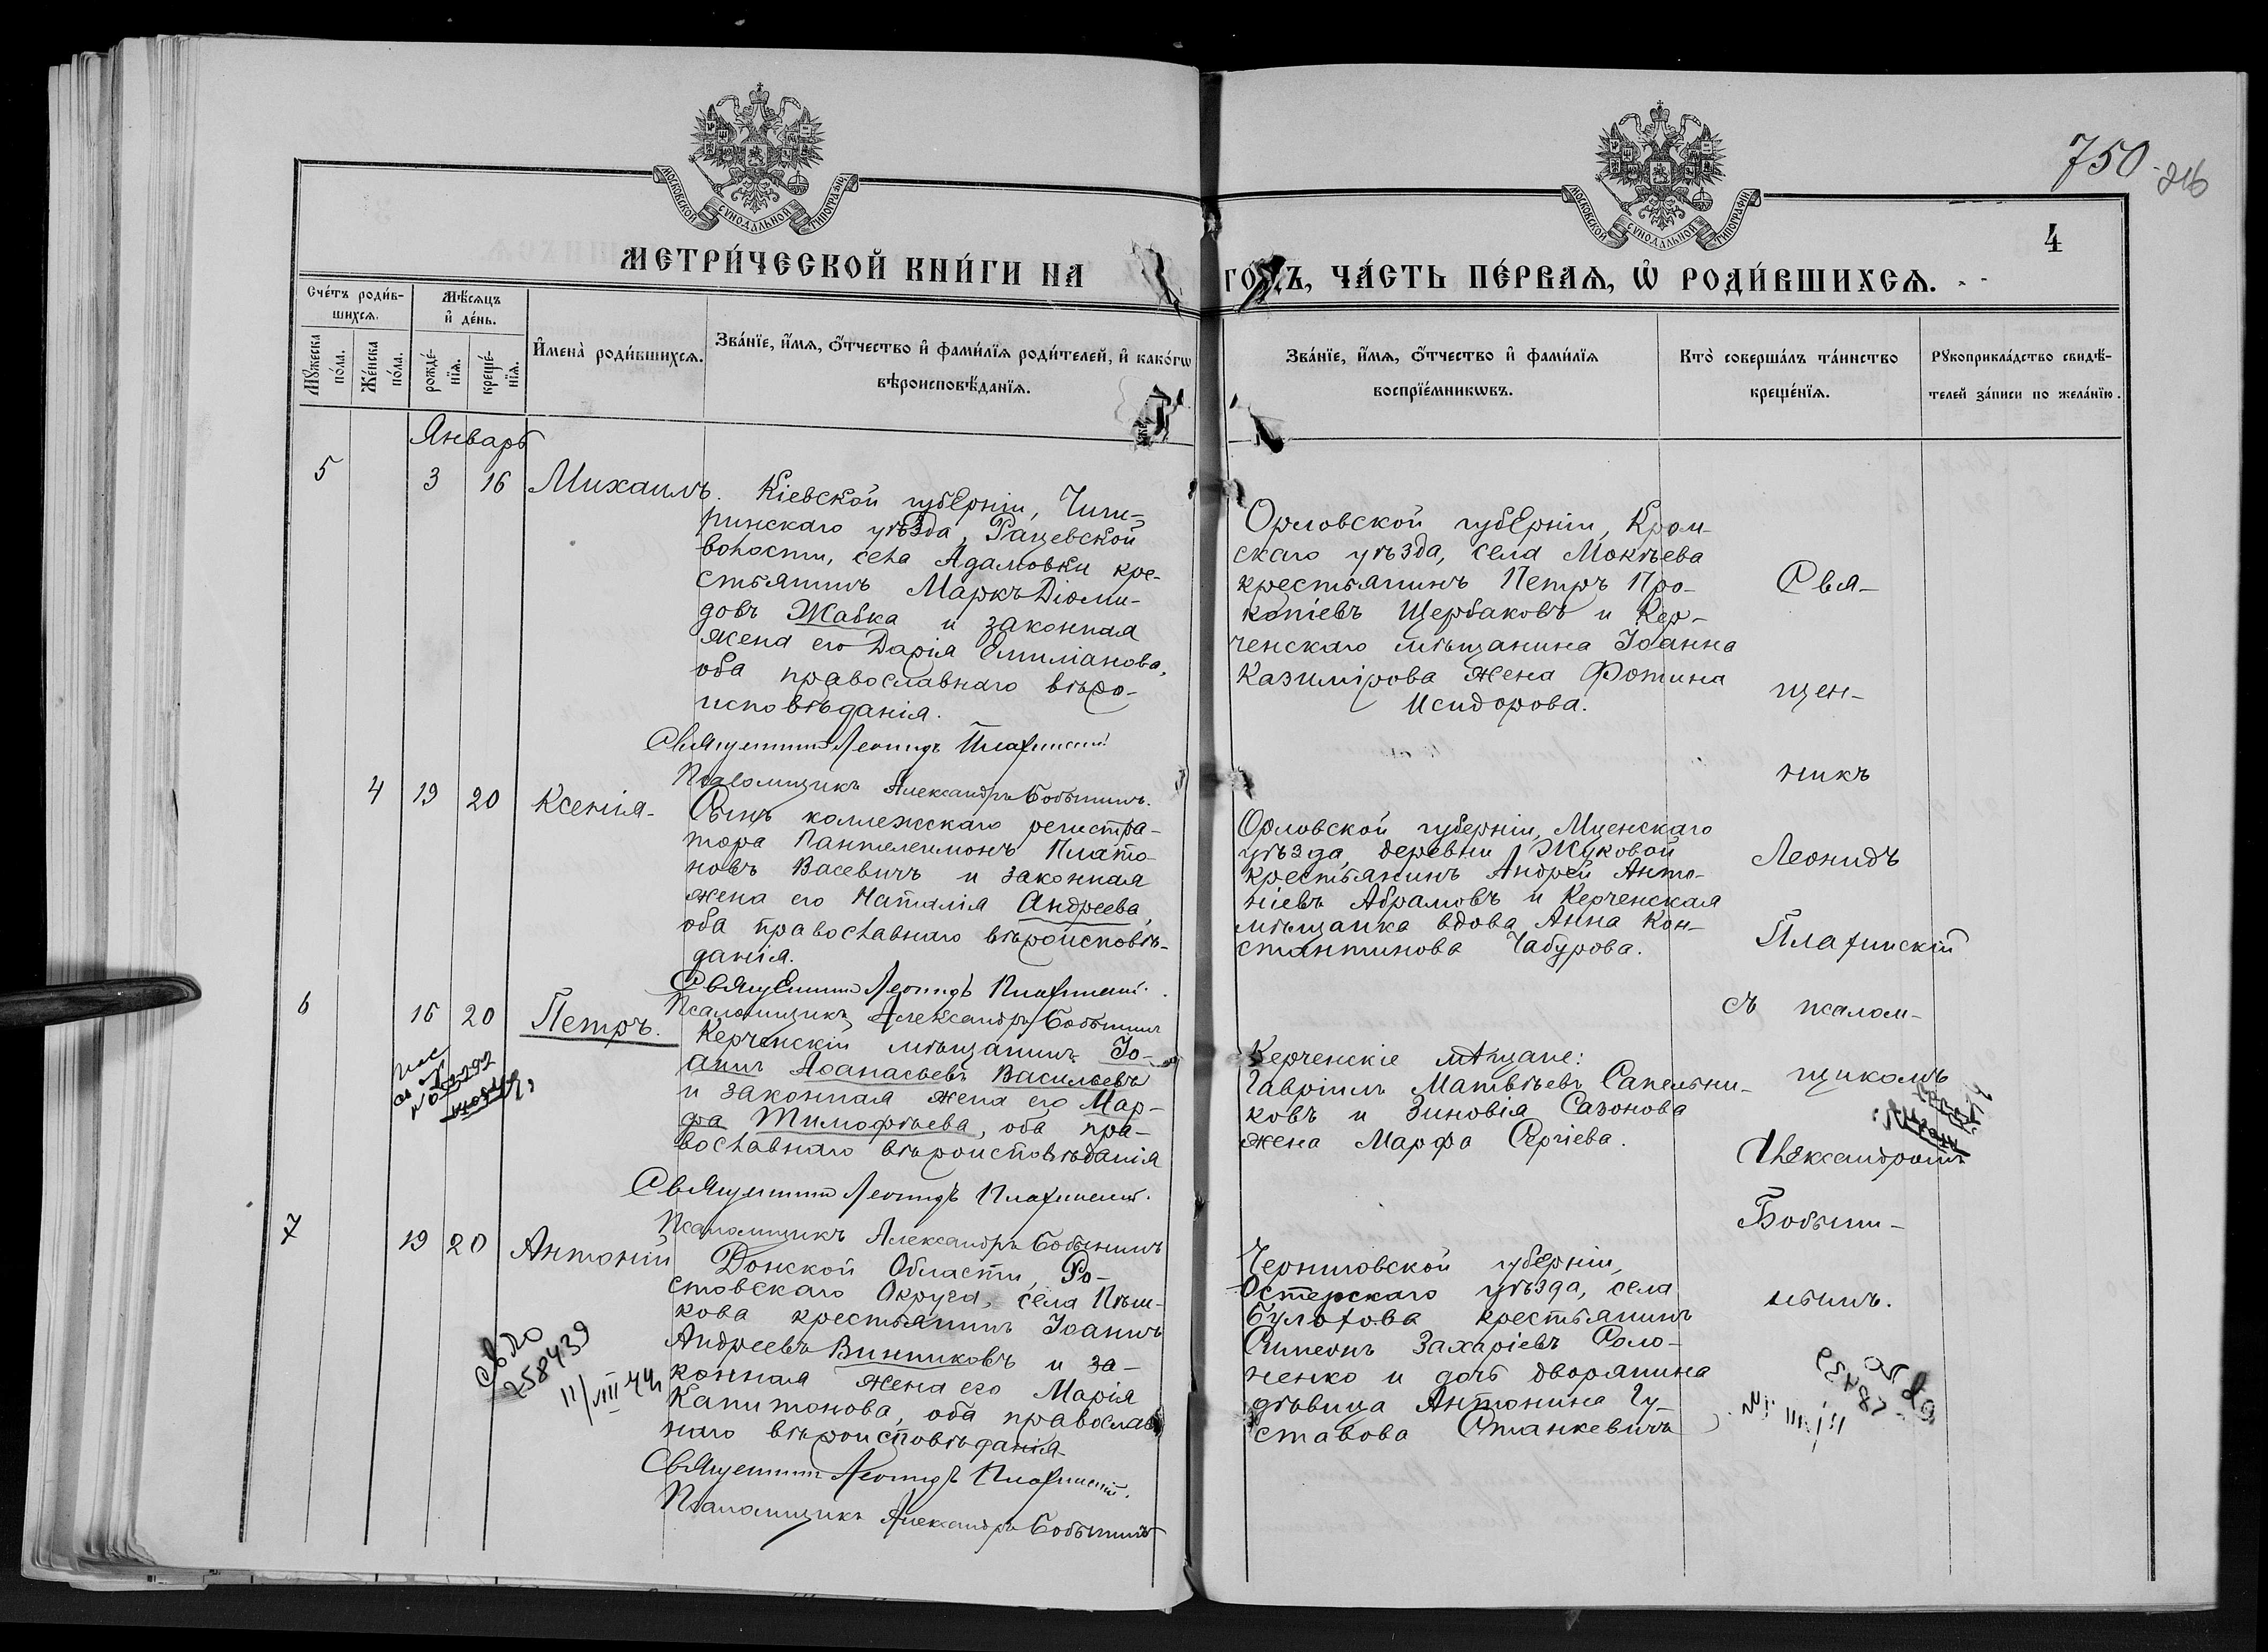 750
4
МОСКОВСКОЙ СѴНОДАЛЬНОЙ ТИПОГРАФІИ
МОСКОВСКОЙ СѴНОДАЛЬНОЙ ТИПОГРАФІИ
МЕТРИ́ЧЕСКОЙ КНИ́ГИ НА
ГО́ДЪ, ЧА́СТЬ ПЕ́РВАѦ, Ѡ҆ РОДИ́ВШИХСѦ.
Сче́тъ роди́в-
шихсѧ.
Мꙋ́жеска
по́ла.
Же́нска
по́ла.
Мѣ́сѧцъ
и҆ де́нь.
рожде́-
нїѧ.
креще́-
нїѧ.
И҆мена̀ роди́вшихсѧ.
Зва́нїе, и҆́мѧ, ѻ҆́тчество и҆ фами́лїѧ роди́телей, и҆ како́гѡ
вѣроисповѣ́данїѧ.
Зва́нїе, и҆́мѧ, ѻ҆́тчество и҆ фами́лїѧ
воспрїе́мникѡвъ.
Кто̀ соверша́лъ та́инство
креще́нїѧ.
Рꙋкоприкла́дство свидѣ́-
телей за́писи по жела́нїю.
Январь
5
3 16 Михаилъ.
Кіевской губерніи, Чиги-
ринскаго уѣзда, Рацевской
волости, села Адамовки кре-
стьянинъ Маркъ Діоми-
довъ Жабка и законная
жена его Дарія Емиліанова,
оба православнаго вѣро-
исповѣданія.
Священникъ Леонидъ Плахинскій
Псаломщикъ Александръ Бобынинъ.
Орловской губерніи, Кром-
скаго уѣзда, села Мокѣева
крестьянинъ Петръ Про-
копіевъ Щербаковъ и Кер-
ченскаго мѣщанина Іоанна
Казимірова жена Фотина
Исидорова.
4 19 20 Ксенія.
Сынъ коллежскаго регистра-
тора Пантелеимонъ Плато-
новъ Васевичъ и законная
жена его Наталія Андреева,
оба православнаго вѣроисповѣ-
данія.
Священникъ Леонидъ Плахинскій.
Псаломщикъ Александръ Бобынинъ
Орловской губерніи, Мценскаго
уѣзда, деревни Жуковой
крестьянинъ Андрей Анто-
ніевъ Абрамовъ и Керченская
мѣщанка вдова Анна Кон-
стантинова Чабурова.
6
16 20 Петръ.
Керченскій мѣщанинъ Іо-
аннъ Аѳанасьевъ Васильевъ
и законная жена его Мар-
фа Тимофѣева, оба пра-
вославнаго вѣроисповѣданія
Священникъ Леонидъ Плахинскій.
Псаломщикъ Александръ Бобынинъ
Керченскіе мѣщане:
Гавріилъ Матвѣевъ Сапельни-
ковъ и Зиновія Сазонова
жена Марфа Сергіева.
7
19 20 Антоній
Донской Области, Ро-
стовскаго Округа, села Пѣш-
кова крестьянинъ Іоаннъ
Андреевъ Винниковъ и за-
конная жена его Марія
Капитонова, оба православ
наго вѣроисповѣданія
Священникъ Леонидъ Плахинскій.
Псаломщикъ Александръ Бобынинъ
Черниговской губерніи,
Остерскаго уѣзда, села
Булахова крестьянинъ
Симеонъ Захаріевъ Соло-
ненко и дочь дворянина
дѣвица Антонина Гу-
ставова Станкевичъ
Свя-
щен-
никъ
Леонидъ
Плахинскій
съ псалом-
щикомъ
Александромъ
Бобыни-
нымъ.
св. №
258439
11/VIII 44 г